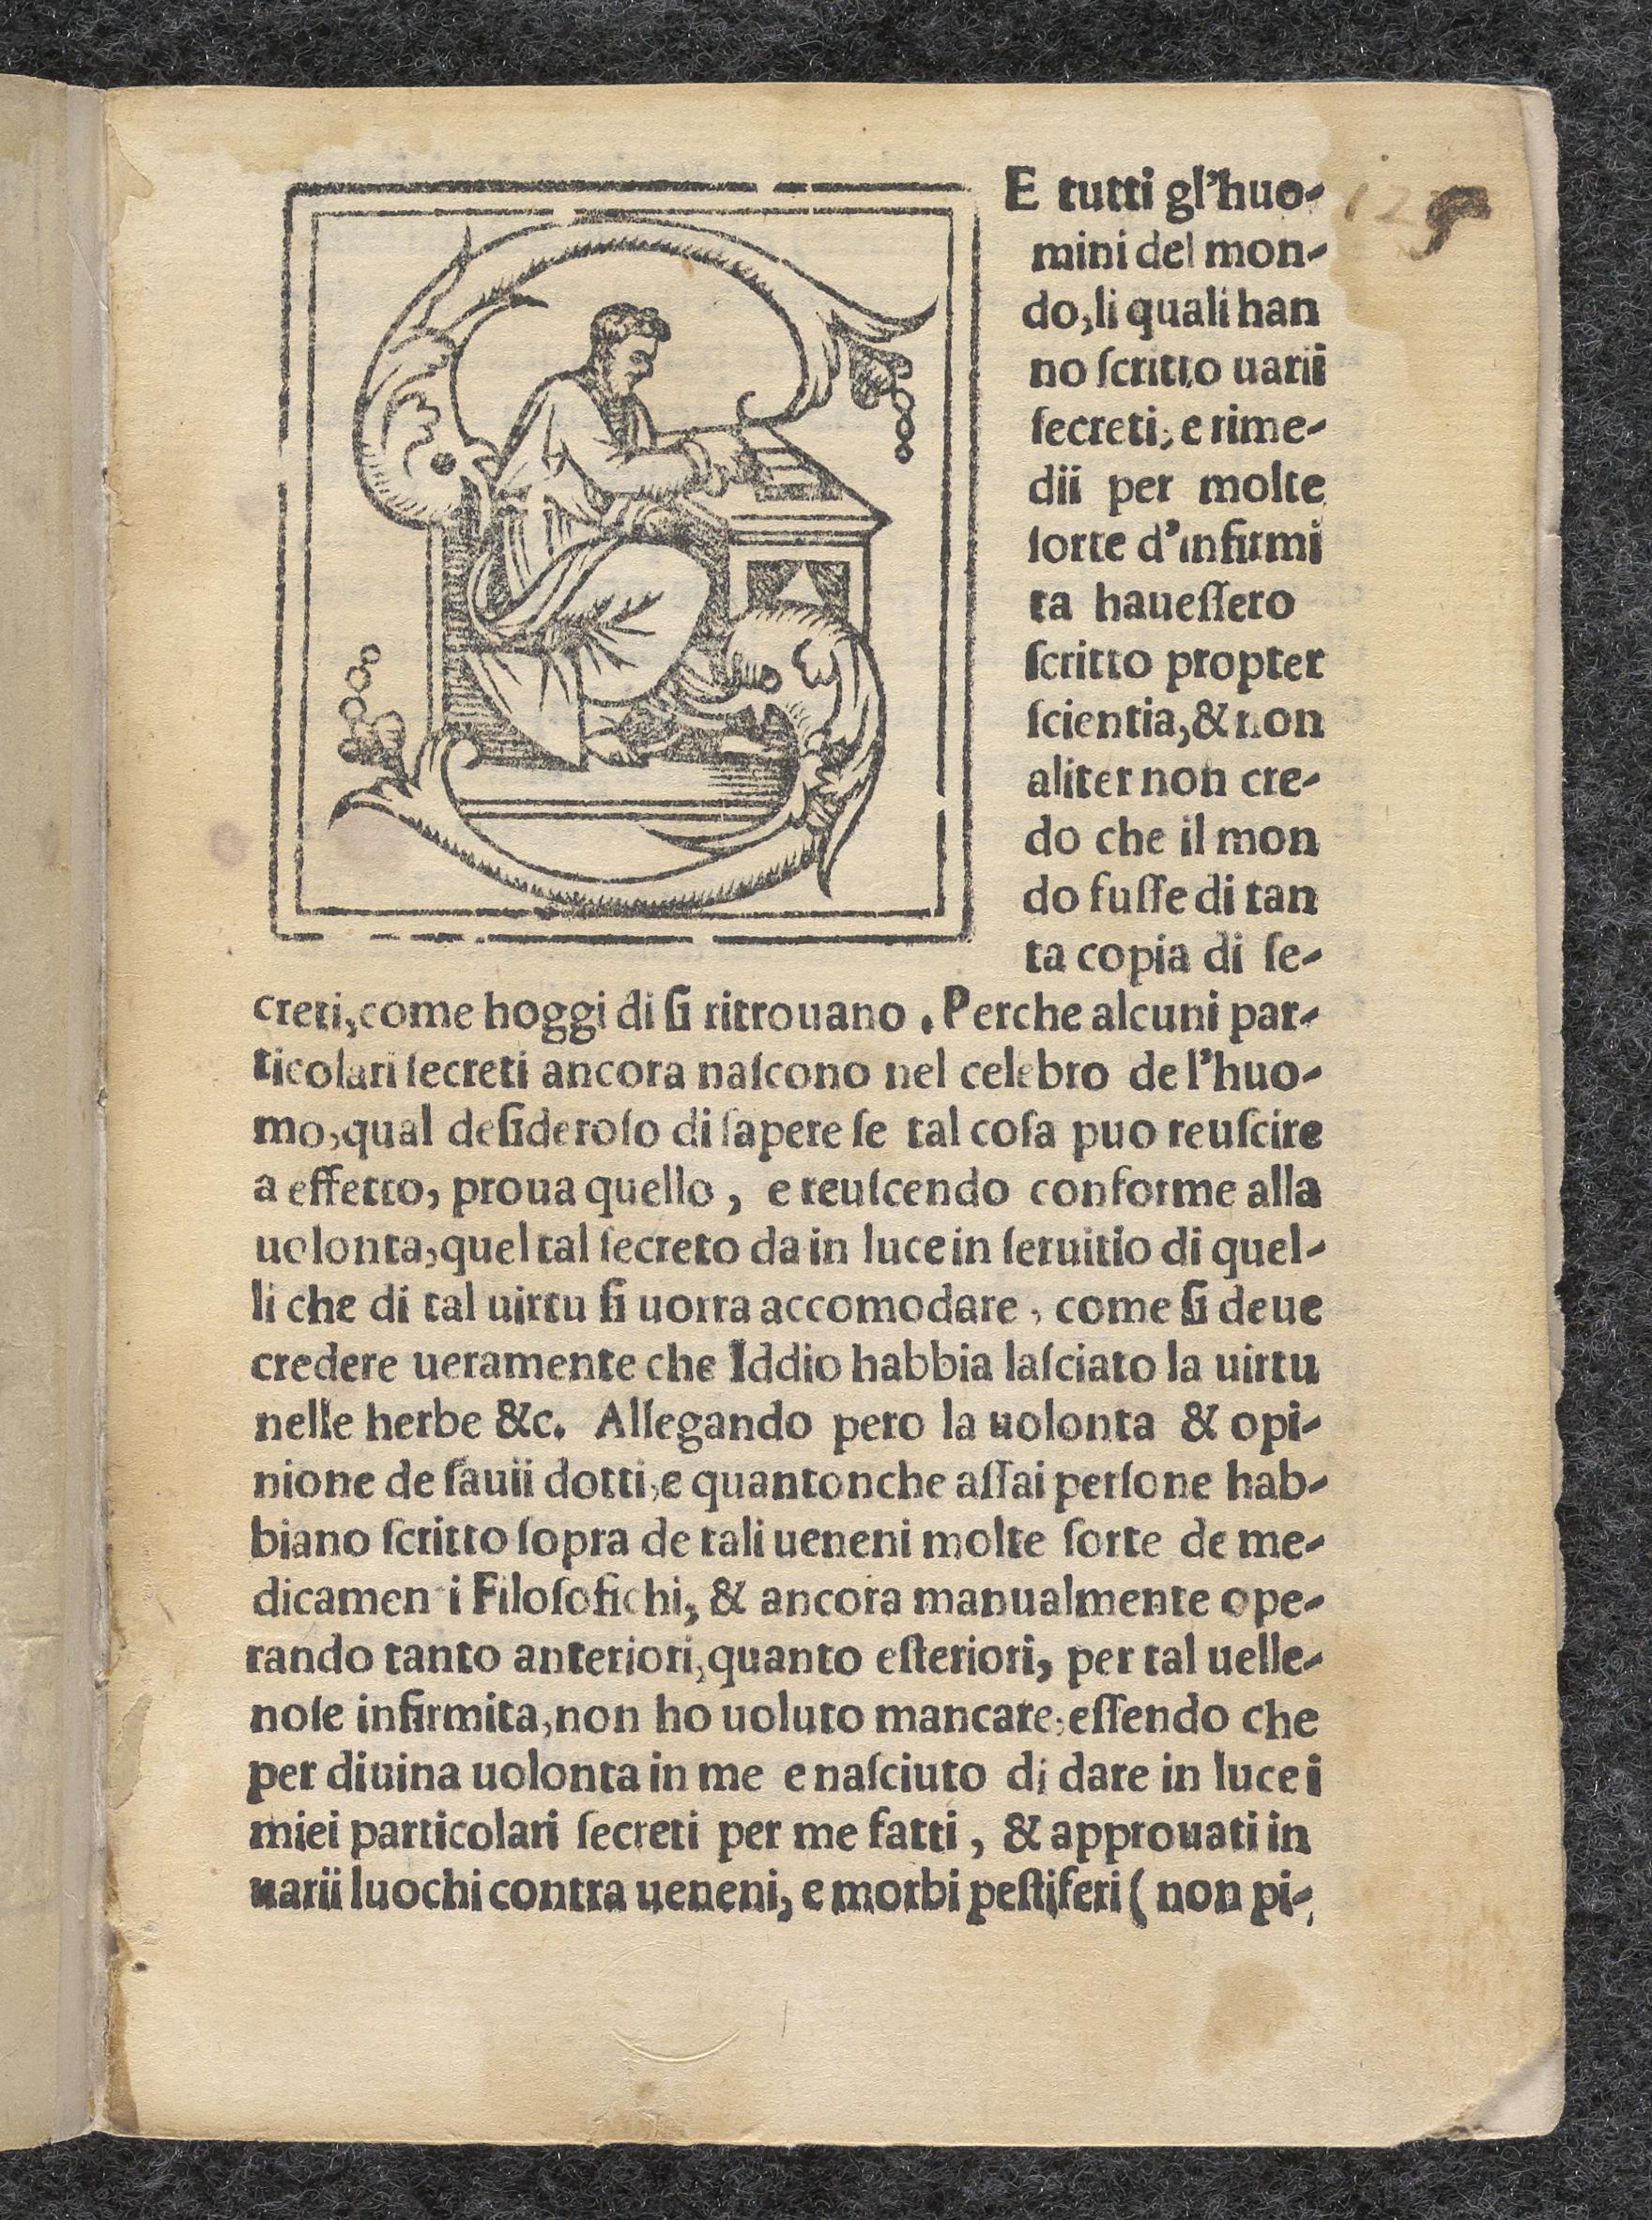 SE tutti gl'huo-
mini del mon-
do, li quali han
no ſcritto uarii
ſecreti, e rime-
dii per molte
ſorte d'infirmi
ta haueſſero
ſcritto propter
ſcientia, & non
aliter non cre-
do che il mon
do fuſſe di tan
ta copia di ſe-
creti, come hoggi di ſi ritrouano. Perche alcuni par-
ticolari ſecreti ancora naſcono nel celebro de l'huo-
mo, qual deſideroſo di ſapere ſe tal coſa puo reuſcire
a effetto, proua quello, e reuſcendo conforme alla
uolonta, quel tal ſecreto da in luce in ſeruitio di quel-
li che di tal uirtu ſi uorra accomodare, come ſi deue
credere ueramente che Iddio habbia laſciato la uirtu
nelle herbe &c. Allegando pero la uolonta & opi-
nione de ſauii dotti, e quantonche aſſai perſone hab-
biano ſcritto ſopra de tali ueneni molte ſorte de me-
dicamen i Filoſofichi, & ancora manualmente ope-
rando tanto anteriori, quanto eſteriori, per tal uelle-
noſe infirmita, non ho uoluto mancare, eſſendo che
per diuina uolonta in me e naſciuto di dare in luce i
miei particolari ſecreti per me fatti, & approuati in
uarii luochi contra ueneni, e morbi peſtiferi ( non pi-